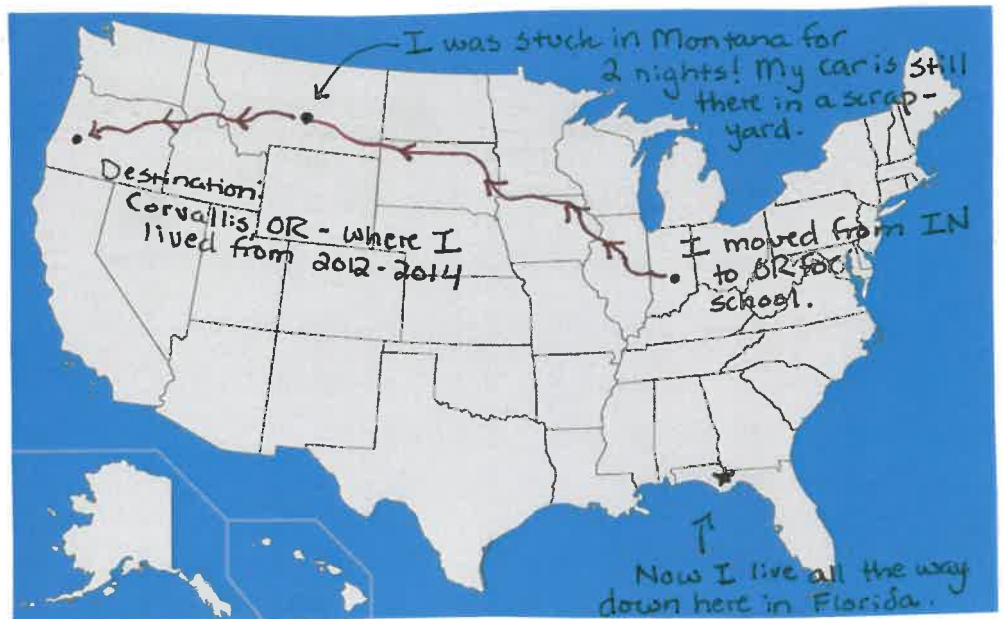 I was stuck in Montana for
2 nights! My car is still
there in a scrap-
yard.
Destination:
Corvallis, OR - where I
lived from 2012-2014
I moved from IN
to OR for
school.
Now I live all the way
down here in Florida.